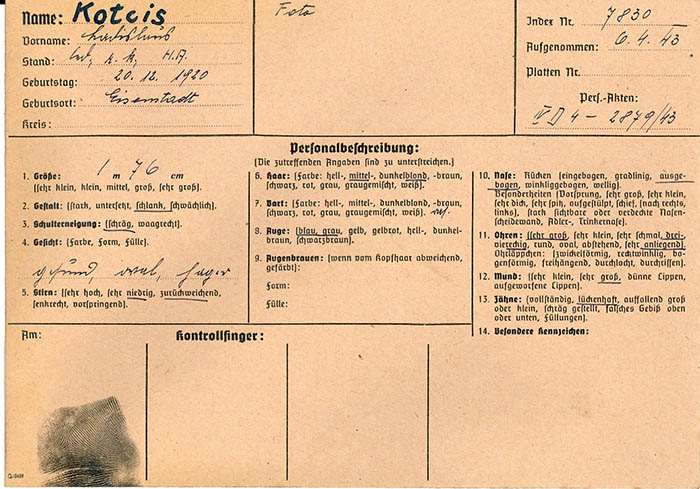 Name: Kotcis
Vorname: Ladislaus
Stand: led., r. k., H.A.
Geburtstag: 20. 12. 1920
Geburtsort: Eisenstadt
Kreis:
Foto
Index Nr. 7830
Aufgenommen: 6. 4. 43
Platten Nr.
Pers.-Akten:
IV D 4 - 2879/43
Personalbeschreibung:
(Die zutreffenden Angaben sind zu unterstreichen.)
1. Größe: 1 m 76 cm
(sehr klein, klein, mittel, groß, sehr groß).
2. Gestalt: (stark, untersetzt, schlank, schwächlich).
3. Schulterneigung: (schräg, waagrecht).
4. Gesicht: (Farbe, Form, Fülle).
gesund, oval, hager
5. Stirn: (sehr hoch, sehr niedrig, zurückweichend,
senkrecht, vorspringend).
6. Haar: (Farbe: hell-, mittel-, dunkelblond, -braun,
schwarz, rot, grau, graugemischt, weiß).
7. Bart: (Farbe: hell-, mittel-, dunkelblond, -braun,
schwarz, rot, grau, graugemischt, weiß).
8. Auge: (blau, grau, gelb, gelbrot, hell-, dunkel-
braun, schwarzbraun).
9. Augenbrauen: (wenn vom Kopfhaar abweichend,
gefärbt):
Form:
Fülle:
10. Nase: Rücken (eingebogen, gradlinig, ausge-
bogen, winkliggebogen, wellig).
Besonderheiten (Vorsprung, sehr groß, sehr klein,
sehr dick, sehr spitz, aufgestülpt, schief, (nach rechts,
links), stark sichtbare oder verdeckte Nasen-
scheidewand, Adler-, Trinkernase).
11. Ohren: (sehr groß, sehr klein, sehr schmal, drei-,
viereckig, rund, oval, abstehend, sehr anliegend).
Ohrläppchen: (zwickelförmig, rechtwinklig, bo-
genförmig, freihängend, durchlocht, durchrissen).
12. Mund: (sehr klein, sehr groß, dünne Lippen,
aufgeworfene Lippen).
13. Zähne: (vollständig, lückenhaft, auffallend groß
oder klein, schräg gestellt, falsches Gebiß oben
oder unten, Füllungen).
14. Besondere Kennzeichen:
Am:
Kontrollfinger: